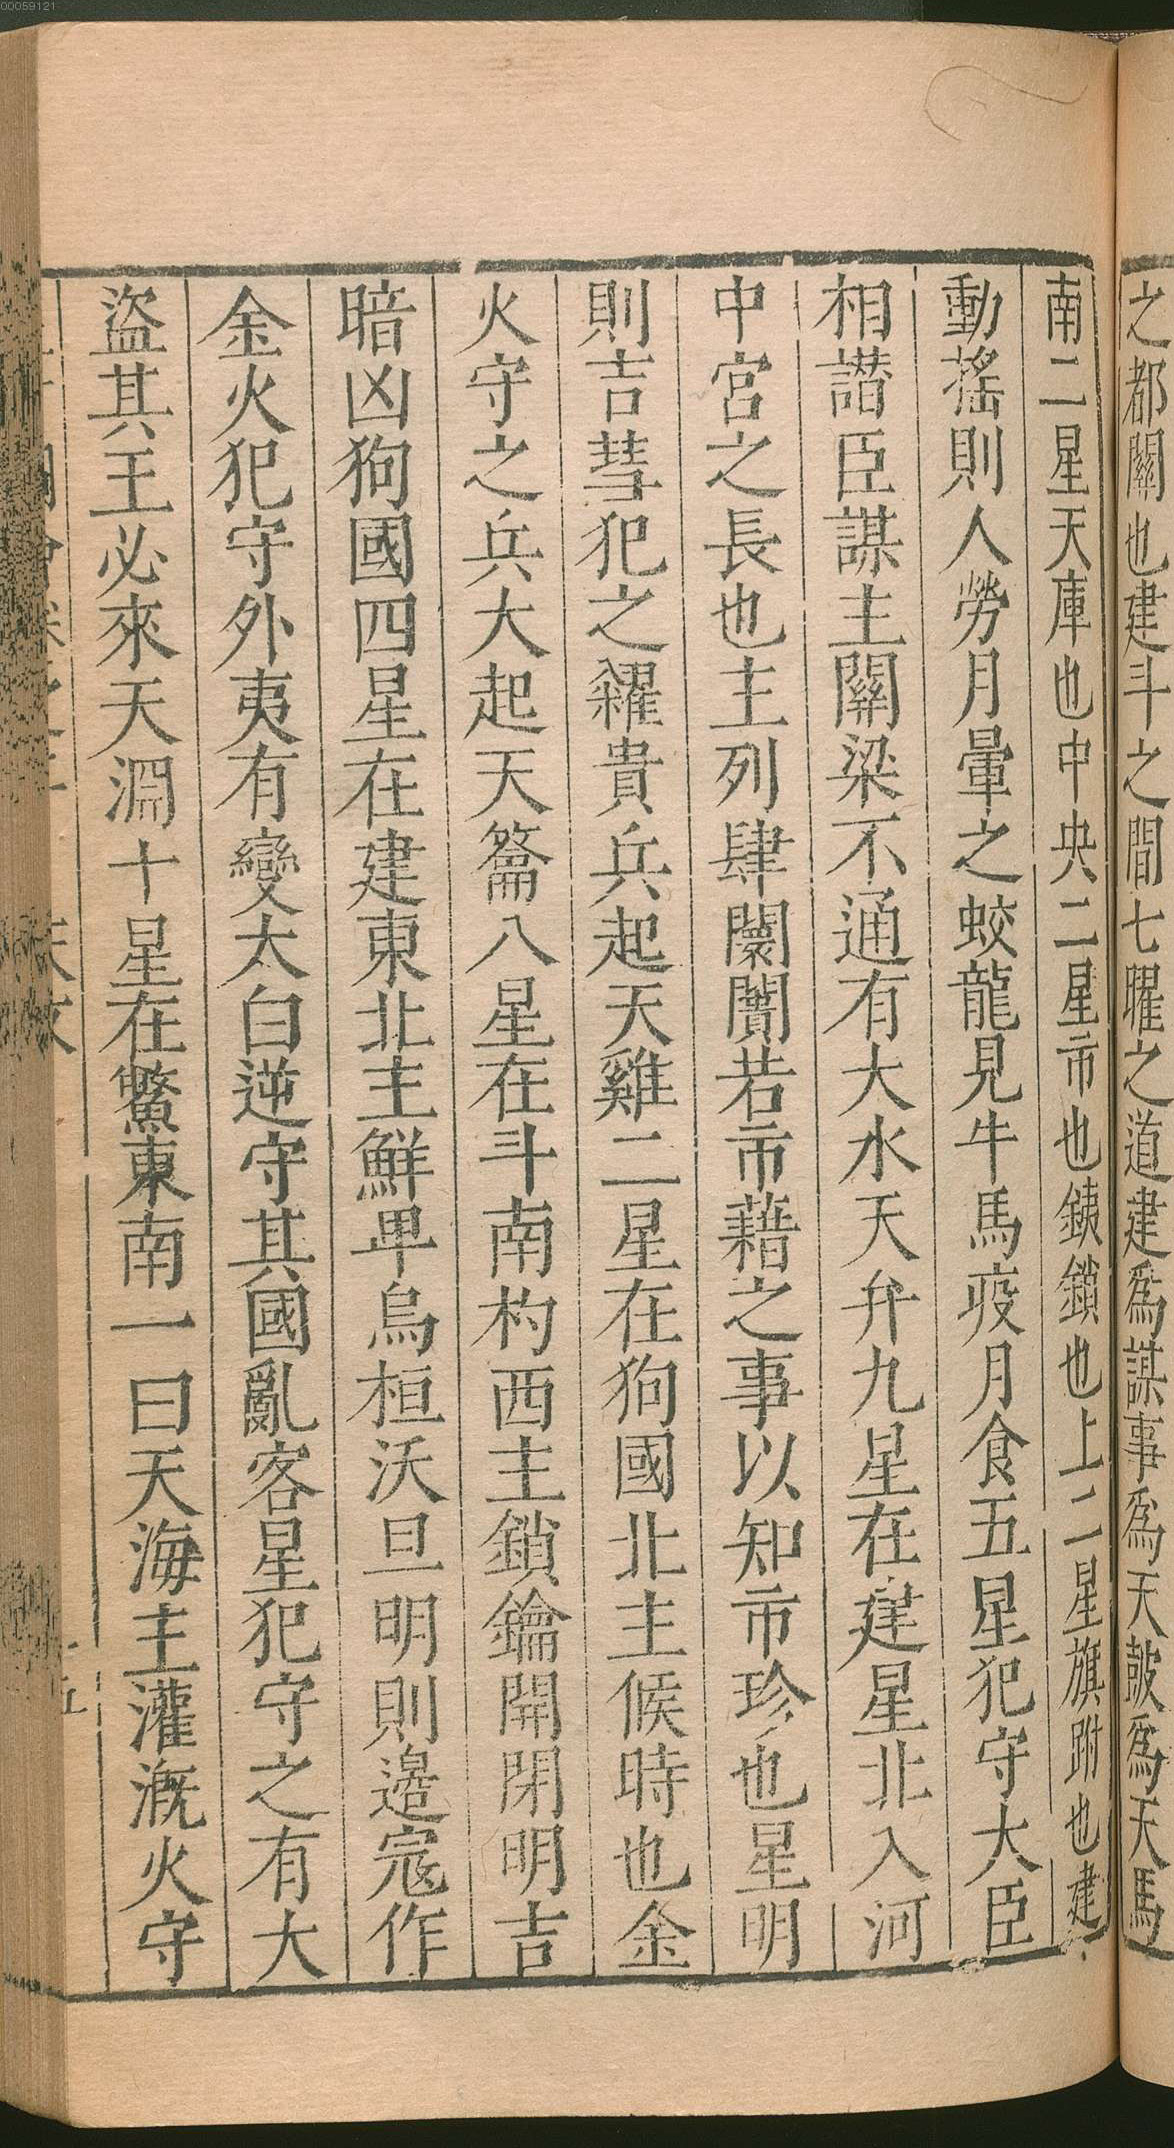 之都關也建斗之間七曜之道建爲謀事爲天皷爲天馬
南二星天庫也中央二星市也鈇鎖也上二星旗跗也建
動搖則人勞月暈之蛟龍見牛馬疫月食五星犯守大臣
相譛臣謀主關梁不通有大水天弁九星在建星北入河
中宮之長也主列肆闤闠若市藉之事以知市珍也星明
則吉彗犯之糴貴兵起天雞二星在狗國北主候時也金
火守之兵大起天籥八星在斗南杓西主鎖鑰開閉明吉
暗凶狗國四星在建東北主鮮卑烏桓沃旦明則邉寇作
金火犯守外夷有變太白逆守其國亂客星犯守之有大
盜其王必來天淵十星在鱉東南一曰天海主灌溉火守
00059121